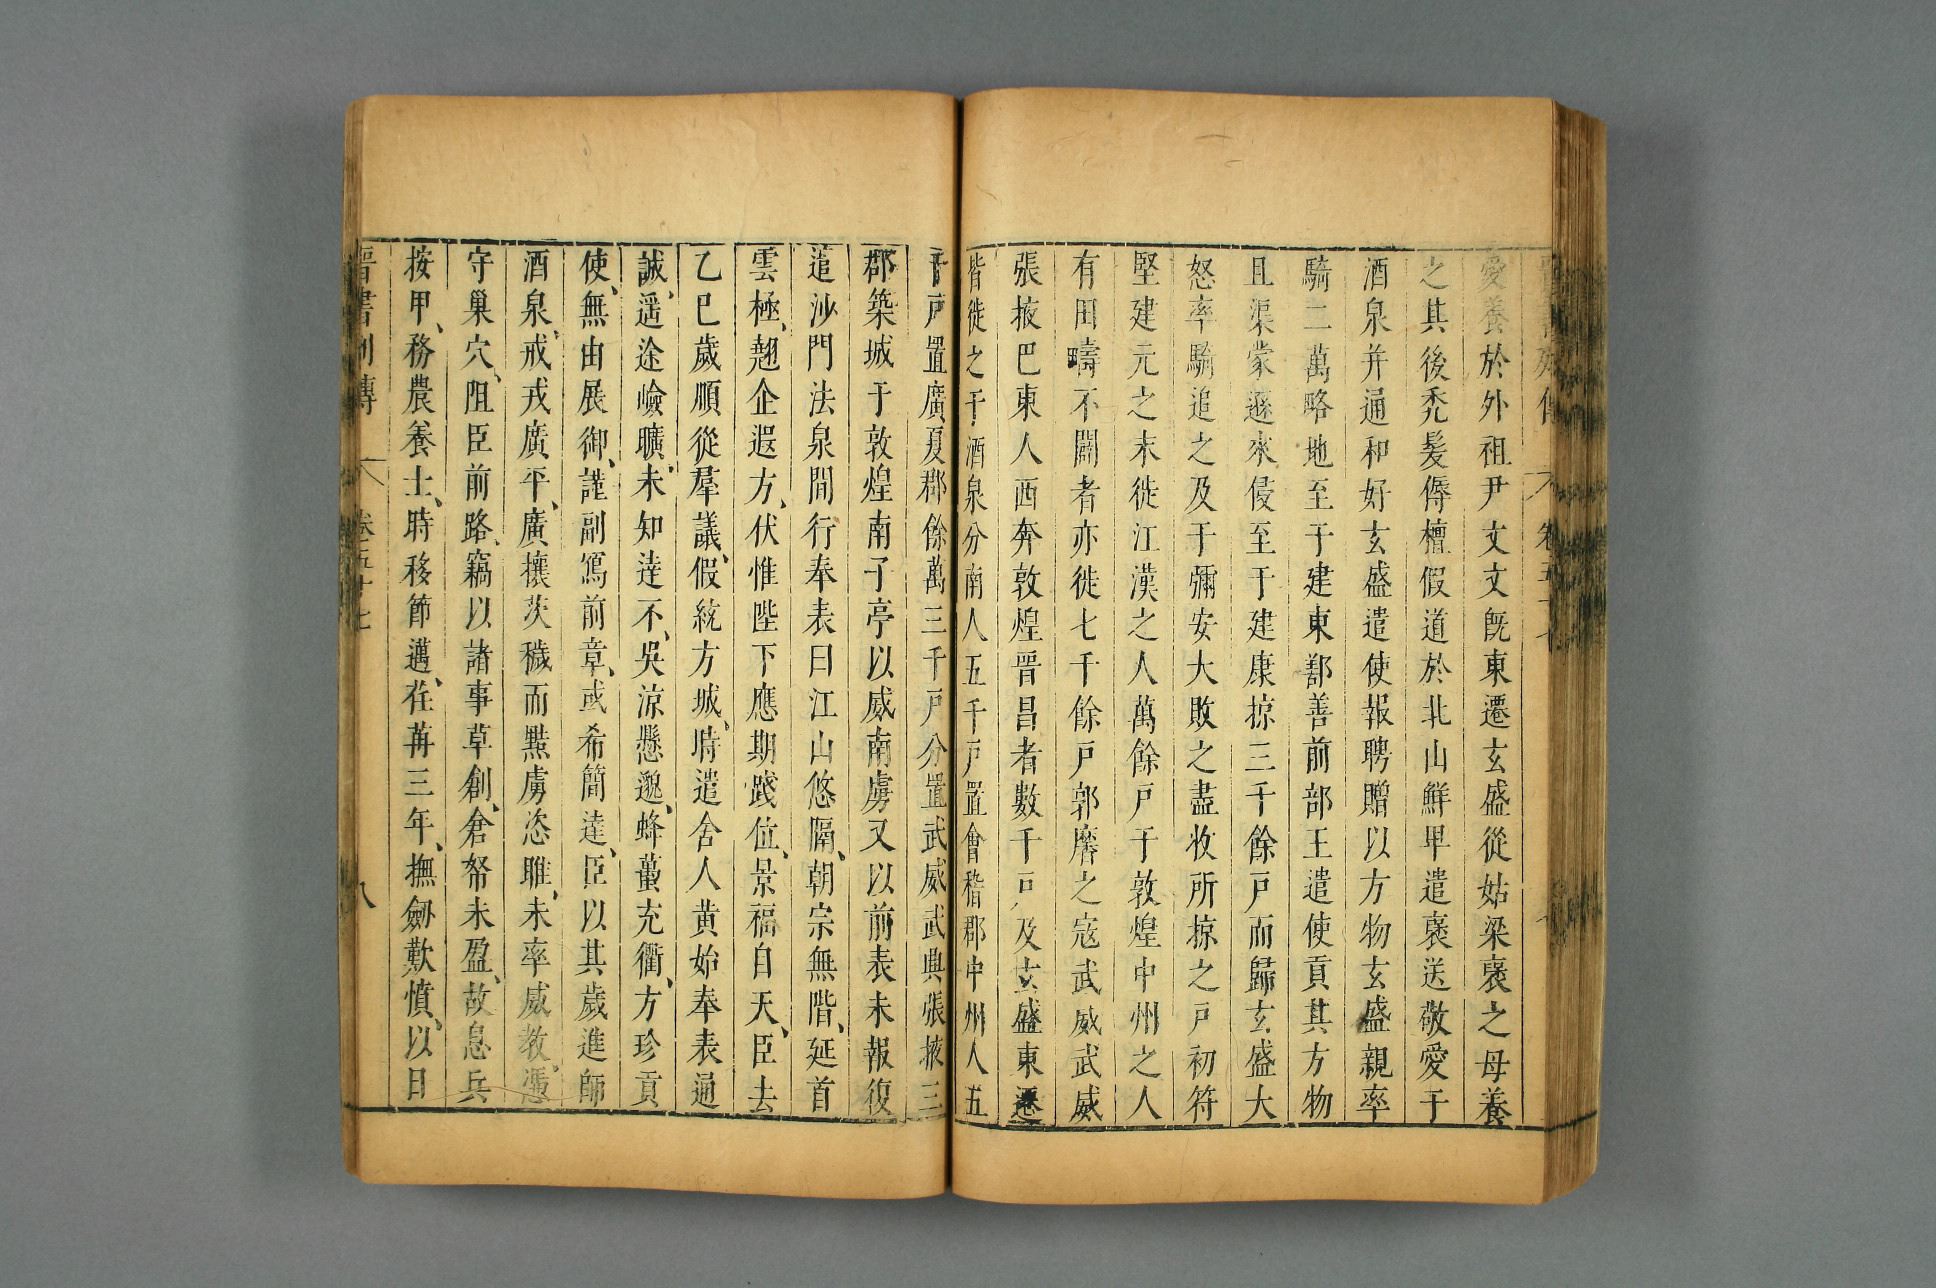 愛養於外祖尹文文旣東遷玄盛從姑梁褒之母養
之其後禿髮傉檀假道於北山鮮卑遣褒送敬愛于
酒泉并通和好玄盛遣使報聘贈以方物玄盛親率
騎二萬略地至于建東鄯善前部王遣使貢其方物
且渠蒙遜來侵至于建康掠三千餘戸而歸玄盛大
怒率騎追之及于彌安大敗之盡收所掠之戸初苻
堅建元之末徙江漢之人萬餘戸于敦煌中州之人
有田疇不闢者亦徙七千餘戸郭黁之寇武威武威
張掖巴東人西奔敦煌晉昌者數千戸及玄盛東遷
皆徙之于酒泉分南人五千戸置會稽郡中州人五
千戸置廣夏郡餘萬三千戸分置武威武興張掖三
郡築城于敦煌南子亭以威南虜又以前表未報復
遣沙門法泉間行奉表曰江山悠隔、朝宗無階、延首
雲極、翹企遐方、伏惟陛下應期踐位、景福自天、臣去
乙巳歲順從羣議、假統方城、時遣舍人黄始奉表通
誠、遥途嶮曠、未知逹不、吳涼懸邈、蜂蠆充衢、方珍貢
使、無由展御、謹副寫前章、或希簡逹、臣以其歲進師
酒泉、戒戎廣平、廣攘茨穢而黠虜恣睢、未率威教、憑
守巢穴、阻臣前路、竊以諸事草創、倉帑未盈、故息兵
按甲、務農養士、時移節邁、荏苒三年、撫劒歎憤、以日
晉書列傳 卷五十七 八